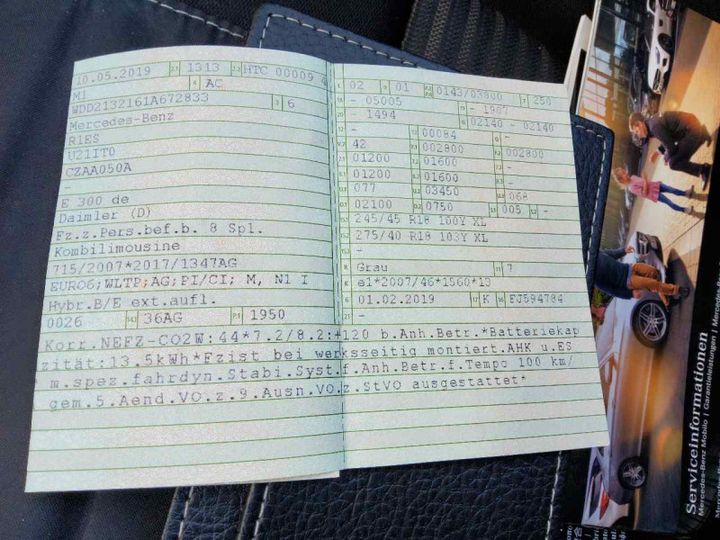 10.05.2019 1313 HTC 00009
M1 AC
WDD2132161A672833 6
Mercedes-Benz
R1ES
U21IT0
CZAA050A
-
E 300 de
Daimler (D)
Fz.z.Pers.bef.b. 8 Spl.
Kombilimousine
715/2007*2017/1347AG
EURO6;WLTP;AG;PI/CI; M, N1 I
Hybr.B/E ext.aufl.
0026 36AG 1950
02 01 0143/03800 250
- 05005 - 1987
- 1494 02140 - 02140
- 00084 -
42 002800 002800
01200 01600 -
01200 01600 -
077 03450 068
02100 0750 005 -
245/45 R18 100Y XL
275/40 R18 103Y XL
-
Grau 7
e1*2007/46*1560*13
01.02.2019 K EJ594784
-
Korr.NEFZ-CO2W:44*7.2/8.2:+120 b.Anh.Betr.*Batteriekap
zität:13.5kWh*Fzist bei werksseitig montiert.AHK u.ES
m.spez.fahrdyn.Stabi.Syst.f.Anh.Betr.f.Tempo 100 km/
gem.5.Aend.VO.z.9.Ausn.VO.z.StVO ausgestattet*
Serviceinformationen
Mercedes-Benz Mobilo | Garantieleistungen | Mercedes-Benz